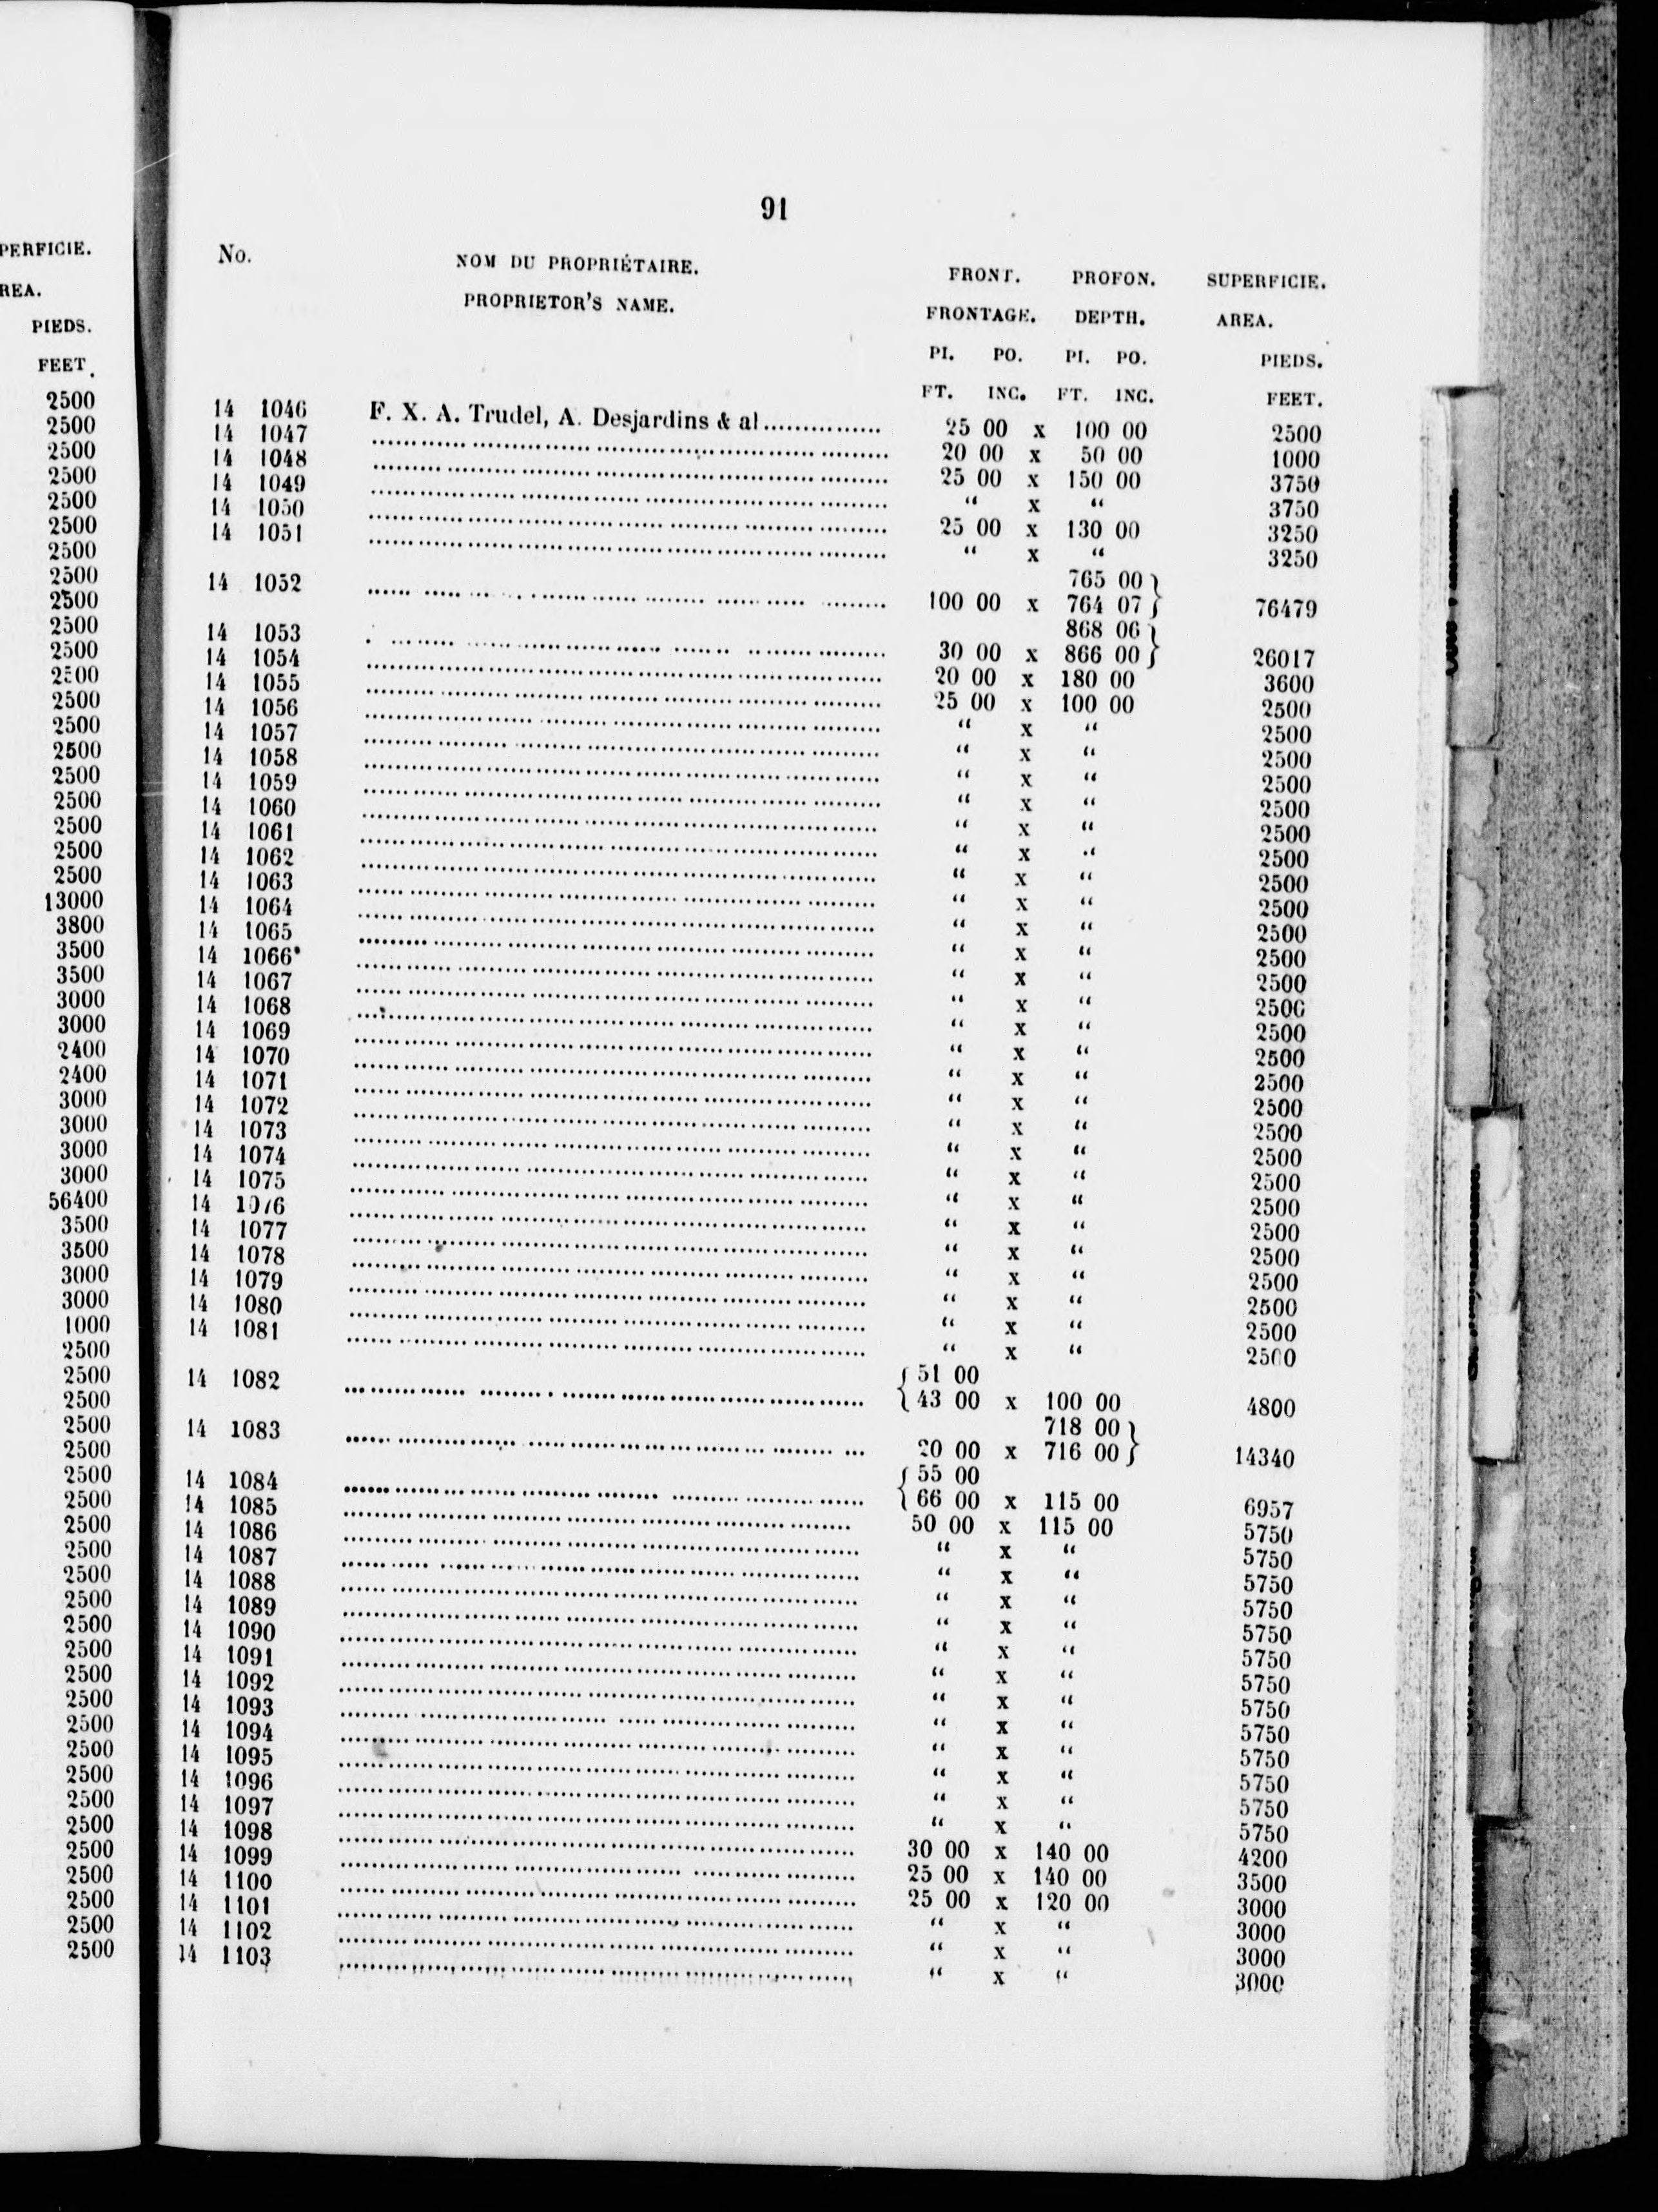 PERFICIE.
REA.
PIEDS.
FEET.
2500
2500
2500
2500
2500
2500
2500
2500
2500
2500
2500
2500
2500
2500
2500
2500
2500
2500
2500
2500
13000
3800
3500
3500
3000
3000
2400
2400
3000
3000
3000
3000
56400
3500
3500
3000
3000
1000
2500
2500
2500
2500
2500
2500
2500
2500
2500
2500
2500
2500
2500
2500
2500
2500
2500
2500
2500
2500
2500
2500
2500
2500
2500
91
No. NOM DU PROPRIÉTAIRE. FRONT. PROFON. SUPERFICIE.
PROPRIETOR'S NAME. FRONTAGE. DEPTH. AREA.
PI. PO. PI. PO. PIEDS.
FT. INC. FT. INC. FEET.
14 1046 F. X. A. Trudel, A. Desjardins & al............... 25 00 x 100 00 2500
14 1047 ............... 20 00 x 50 00 1000
14 1048 ............... 25 00 x 150 00 3750
14 1049 ............... " x " 3750
14 1050 ............... 25 00 x 130 00 3250
14 1051 ............... " x " 3250
765 00 }
14 1052 ............... 100 00 x 764 07 } 76479
868 06 }
14 1053 ............... 30 00 x 866 00 } 26017
14 1054 ............... 20 00 x 180 00 3600
14 1055 ............... 25 00 x 100 00 2500
14 1056 ............... " x " 2500
14 1057 ............... " x " 2500
14 1058 ............... " x " 2500
14 1059 ............... " x " 2500
14 1060 ............... " x " 2500
14 1061 ............... " x " 2500
14 1062 ............... " x " 2500
14 1063 ............... " x " 2500
14 1064 ............... " x " 2500
14 1065 ............... " x " 2500
14 1066 ............... " x " 2500
14 1067 ............... " x " 2500
14 1068 ............... " x " 2500
14 1069 ............... " x " 2500
14 1070 ............... " x " 2500
14 1071 ............... " x " 2500
14 1072 ............... " x " 2500
14 1073 ............... " x " 2500
14 1074 ............... " x " 2500
14 1075 ............... " x " 2500
14 1076 ............... " x " 2500
14 1077 ............... " x " 2500
14 1078 ............... " x " 2500
14 1079 ............... " x " 2500
14 1080 ............... " x " 2500
14 1081 ............... " x " 2500
{ 51 00
14 1082 ............... { 43 00 x 100 00 4800
718 00 }
14 1083 ............... 20 00 x 716 00 } 14340
{ 55 00
14 1084 ............... { 66 00 x 115 00 6957
14 1085 ............... 50 00 x 115 00 5750
14 1086 ............... " x " 5750
14 1087 ............... " x " 5750
14 1088 ............... " x " 5750
14 1089 ............... " x " 5750
14 1090 ............... " x " 5750
14 1091 ............... " x " 5750
14 1092 ............... " x " 5750
14 1093 ............... " x " 5750
14 1094 ............... " x " 5750
14 1095 ............... " x " 5750
14 1096 ............... " x " 5750
14 1097 ............... " x " 5750
14 1098 ............... 30 00 x 140 00 4200
14 1099 ............... 25 00 x 140 00 3500
14 1100 ............... 25 00 x 120 00 3000
14 1101 ............... " x " 3000
14 1102 ............... " x " 3000
14 1103 ............... " x " 3000